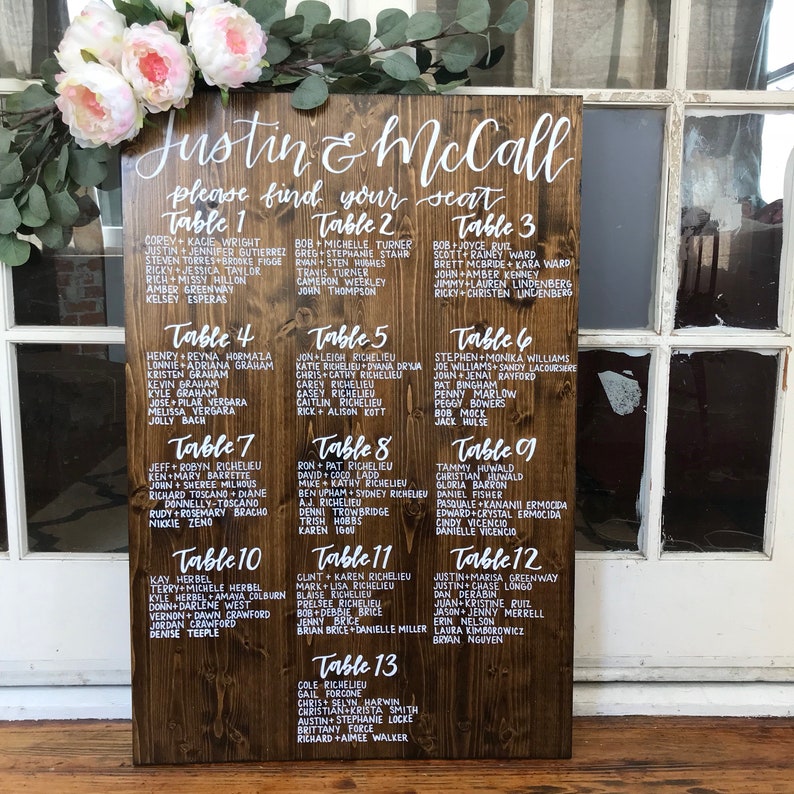 Justin & McCall
please find your seat
Table 1
COREY + KACIE WRIGHT
JUSTIN + JENNIFER GUTIERREZ
STEVEN TORRES + BROOKE FIGGE
RICKY + JESSICA TAYLOR
RICH + MISSY HILLON
AMBER GREENWAY
KELSEY ESPERAS
Table 2
BOB + MICHELLE TURNER
GREG + STEPHANIE STAHR
RYAN + STEN HUGHES
TRAVIS TURNER
CAMERON WEEKLEY
JOHN THOMPSON
Table 3
BOB + JOYCE RUIZ
SCOTT + RAINEY WARD
BRETT MCBRIDE + KARA WARD
JOHN + AMBER KENNEY
JIMMY + LAUREN LINDENBERG
RICKY + CHRISTEN LINDENBERG
Table 4
HENRY + REYNA HORMAZA
LONNIE + ADRIANA GRAHAM
KRISTEN GRAHAM
KEVIN GRAHAM
KYLE GRAHAM
JOSE + PILAR VERGARA
MELISSA VERGARA
JOLLY BACH
Table 5
JON + LEIGH RICHELIEU
KATIE RICHELIEU + DYANA DRWJA
CHRIS + CATHY RICHELIEU
CAREY RICHELIEU
CASEY RICHELIEU
CAITLIN RICHELIEU
RICK + ALISON KOTT
Table 6
STEPHEN + MONIKA WILLIAMS
JOE WILLIAMS + SANDY LACOURSIERE
JOHN + JENAI RAYFORD
PAT BINGHAM
PENNY MARLOW
PEGGY BOWERS
BOB MOCK
JACK HULSE
Table 7
JEFF + ROBYN RICHELIEU
KEN + MARY BARRETTE
JOHN + SHEREE MILHOUS
RICHARD TOSCANO + DIANE
DONNELLY-TOSCANO
RUDY + ROSEMARY BRACHO
NIKKIE ZENO
Table 8
RON + PAT RICHELIEU
DAVID + COCO LADD
MIKE + KATHY RICHELIEU
BEN UPHAM + SYDNEY RICHELIEU
A.J. RICHELIEU
DENNI TROWBRIDGE
TRISH HOBBS
KAREN IGOU
Table 9
TAMMY HUWALD
CHRISTIAN HUWALD
GLORIA BARRON
DANIEL FISHER
PASQUALE + KANANII ERMOCIDA
EDWARD + CRYSTAL ERMOCIDA
CINDY VICENCIO
DANIELLE VICENCIO
Table 10
KAY HERBEL
TERRY + MICHELE HERBEL
KYLE HERBEL + AMAYA COLBURN
DONN + DARLENE WEST
VERNON + DAWN CRAWFORD
JORDAN CRAWFORD
DENISE TEEPLE
Table 11
CLINT + KAREN RICHELIEU
MARK + LISA RICHELIEU
BLAISE RICHELIEU
PRELSEE RICHELIEU
BOB + DEBBIE BRICE
JENNY BRICE
BRIAN BRICE + DANIELLE MILLER
Table 12
JUSTIN + MARISA GREENWAY
JUSTIN + CHASE LONGO
DAN DERABIN
JUAN + KRISTINE RUIZ
JASON + JENNY MERRELL
ERIN NELSON
LAURA KIMBOROWICZ
BRYAN NGUYEN
Table 13
COLE RICHELIEU
GAIL FORCONE
CHRIS + SELYN HARWIN
CHRISTIAN + KRISTA SMITH
AUSTIN + STEPHANIE LOCKE
BRITTANY FORCE
RICHARD + AIMEE WALKER